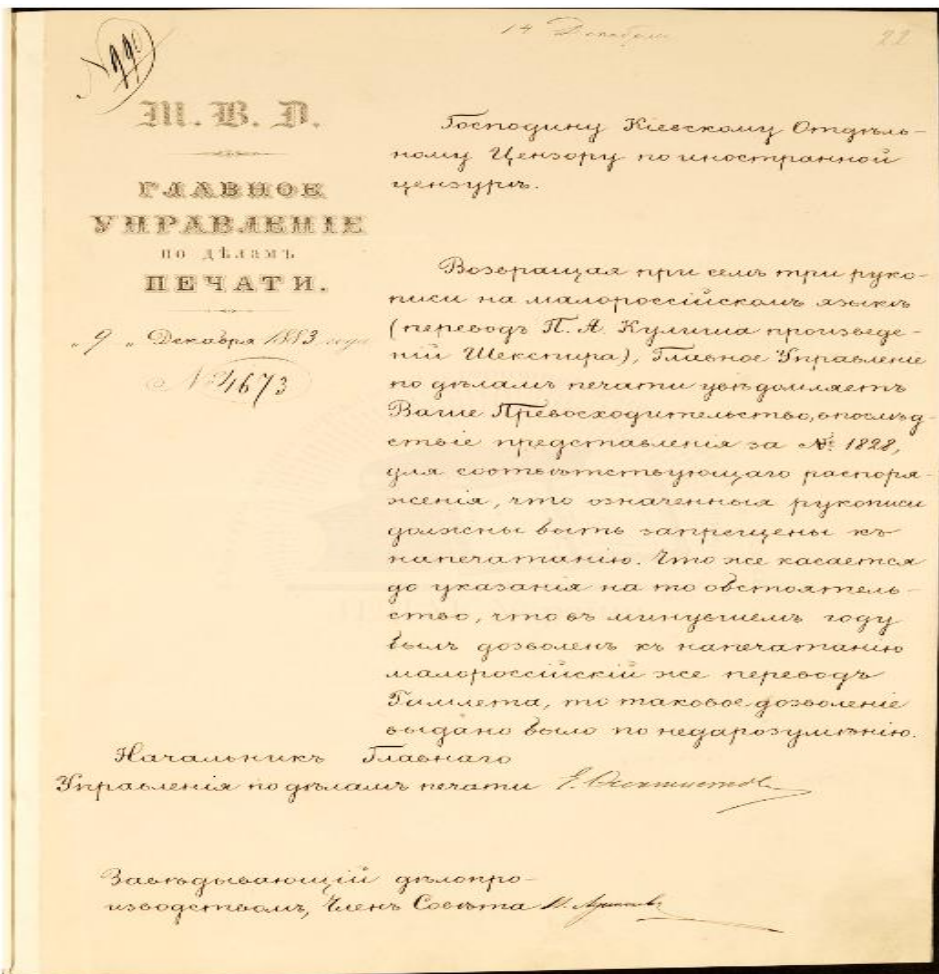 14 Декабря
22
№ 990
М. В. Д.
ГЛАВНОЕ
УПРАВЛЕНІЕ
ПО ДѢЛАМЪ
ПЕЧАТИ.
„ 9 „ Декабря 1883 года
№ 4673
Господину Кіевскому Отдѣль-
ному Цензору по иностранной
цензурѣ.
Возвращая при семъ три руко-
писи на малороссійскомъ языкѣ
(переводъ П. А. Кулиша произведе-
ній Шекспира), Главное Управленіе
по дѣламъ печати увѣдомляетъ
Ваше Превосходительство, впослѣд-
ствіе представленія за № 1828,
для соотвѣтствующаго распоря-
женія, что означенныя рукописи
должны быть запрещены къ
напечатанію. Что же касается
до указанія на то обстоятель-
ство, что въ минувшемъ году
былъ дозволенъ къ напечатанію
малороссійскій же переводъ
Гамлета, то таковое дозволеніе
выдано было по недоразумѣнію.
Начальникъ Главнаго
Управленія по дѣламъ печати Е. Феоктистовъ
Завѣдывающій дѣлопро-
изводствомъ, Членъ Совѣта